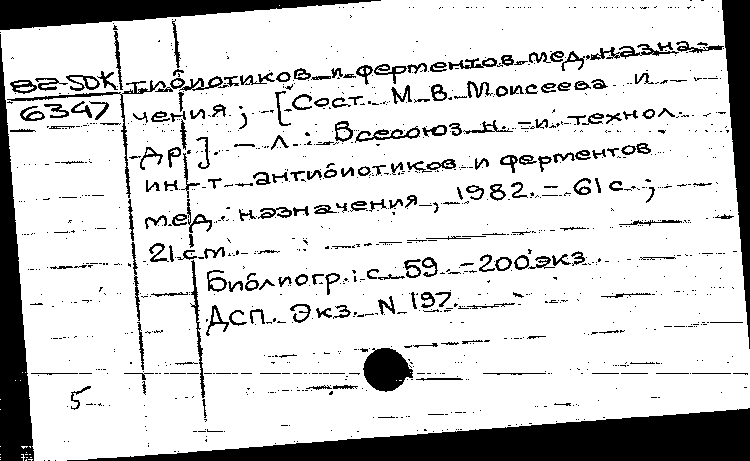 82-5DK тибиотиков и ферментов мед. назна-
6347 чения; [Сост. М. В. Моисеева и
др.]. - Л.: Всесоюз. н.-и. технол.
ин-т антибиотиков и ферментов
мед. назначения, 1982. - 61 с.;
21 см.
Библиогр.: с. 59. - 200 экз.
ДСП. Экз. N 197.
5